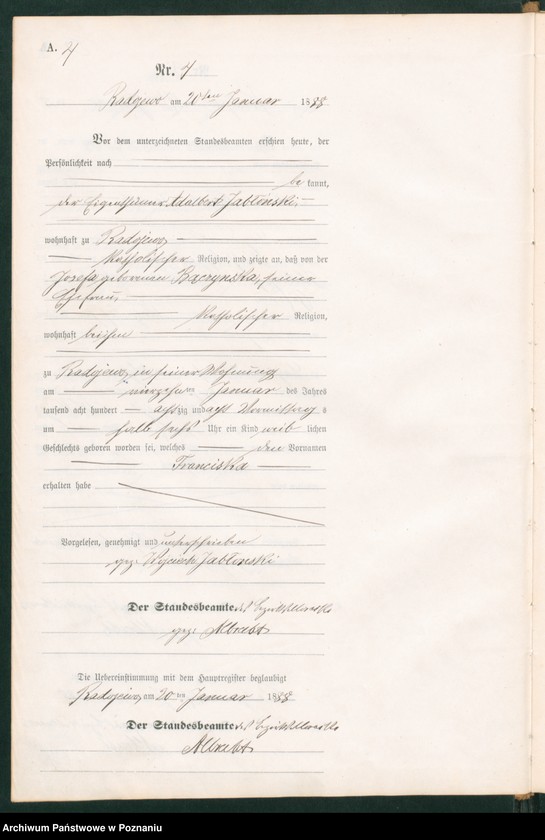 A. 4
Nr. 4
Radojewo am 20ten Januar 1888
Vor dem unterzeichneten Standesbeamten erschien heute, der
Persönlichkeit nach
be kannt,
der Eigenthümer Adalbert Jabłoński,
wohnhaft zu Radojewo,
katholischer Religion, und zeigte an, daß von der
Josefa geborenen Bączynska, seiner
Ehefrau,
katholischer Religion,
wohnhaft bei ihm
zu Radojewo, in seiner Wohnung
am vierzehnten Januar des Jahres
tausend acht hundert achtzig und acht Vormittags
um halb sechs Uhr ein Kind weiblichen
Geschlechts geboren worden sei, welches den Vornamen
Franciska
erhalten habe
Vorgelesen, genehmigt und unterschrieben
gez. Wojciech Jabłonski
Der Standesbeamte.
gez.
Die Uebereinstimmung mit dem Hauptregister beglaubigt
Radojewo, am 20ten Januar 1888
Der Standesbeamte.
Archiwum Państwowe w Poznaniu